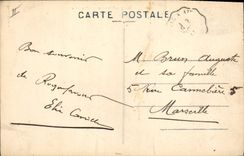 CARTE POSTALE
Bon souvenir
de
M. Brun Auguste
et sa famille
5 Rue Cannebière 5
Marseille